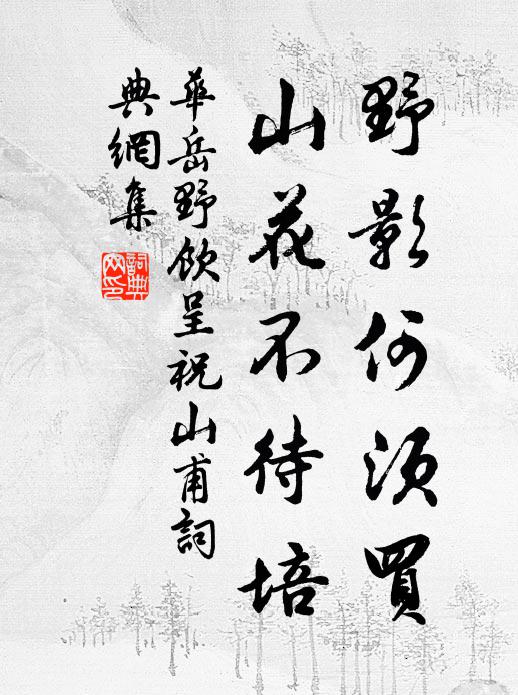 野影何須買
山花不待培
華岳野飲呈祝山甫詞
典網集
詞典
网印